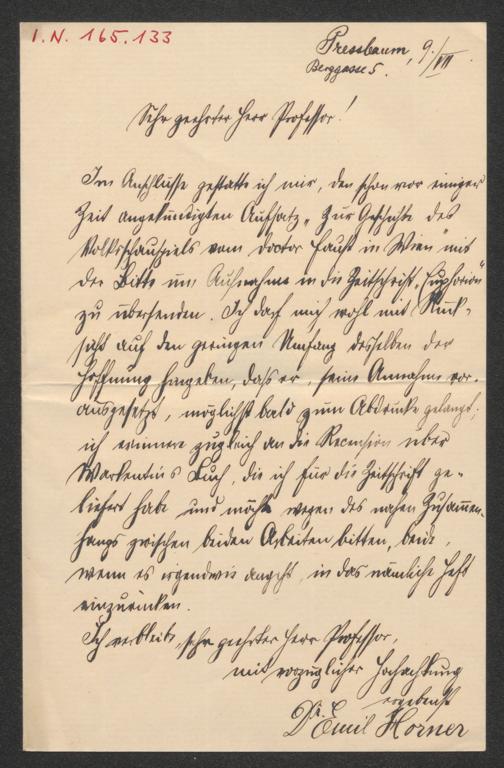 I.N. 165.133
Pressbaum, 9./VII.
Berggasse 5.
Sehr geehrter Herr Professor!
Im Anschlusse gestatte ich mir, den schon vor einiger
Zeit angekündigten Aufsatz „Zur Geschichte des
Volksschauspiels vom Doctor Faust in Wien" mit
der Bitte um Aufnahme in die Zeitschrift „Euphorion"
zu übersenden. Ich darf mich wohl mit Rück-
sicht auf den geringen Umfang desselben der
Hoffnung hingeben, dass er, seine Annahme vor-
ausgesetzt, möglichst bald zum Abdrucke gelangt;
ich erinnere zugleich an die Recension über
Warkentins Buch, die ich für die Zeitschrift ge-
liefert habe und möchte wegen des nahen Zusammen-
hangs zwischen beiden Arbeiten bitten, beide,
wenn es irgendwie angeht, in das nämliche Heft
einzurücken.
Ich verbleibe, sehr geehrter Herr Professor,
mit vorzüglicher Hochachtung
ergebenst
Dr. Emil Horner